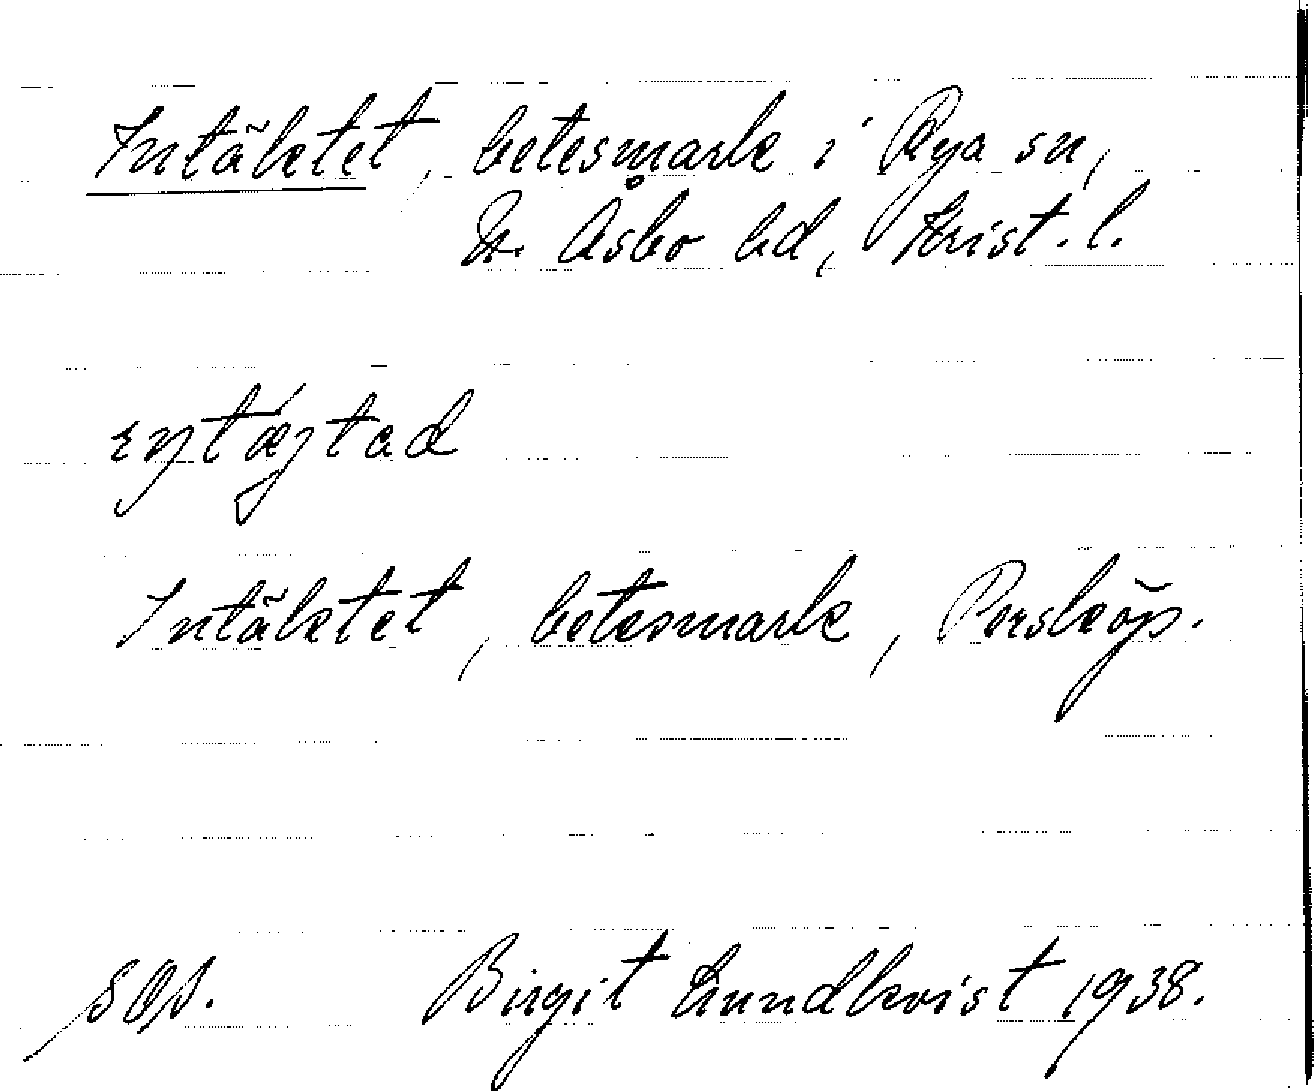 Intäktet, betesmark i Rya sn,
N. Åsbo hd, Krist. l.
Intäktet, betesmark, Persköp.
Birgit Lundkvist 1938.